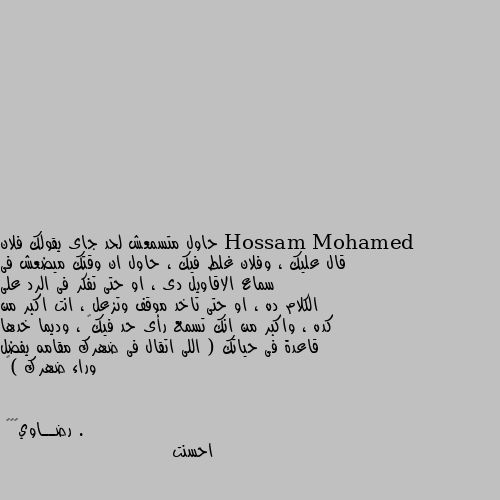 Hossam Mohamed حاول متسمعش لحد جاى يقولك فلان
قال عليك ، وفلان غلط فيك ، حاول ان وقتك ميضعش فى
سماع الاقاويل دى ، او حتى تفكر فى الرد على
الكلام ده ، او حتى تاخد موقف وتزعل ، انت اكبر من
كده ، واكبر من انك تسمع رأى حد فيك ، وديما خدها
قاعدة فى حياتك ( اللى اتقال فى ضهرك مقامه يفضل
وراء ضهرك )
رضــاوي .
احسنت